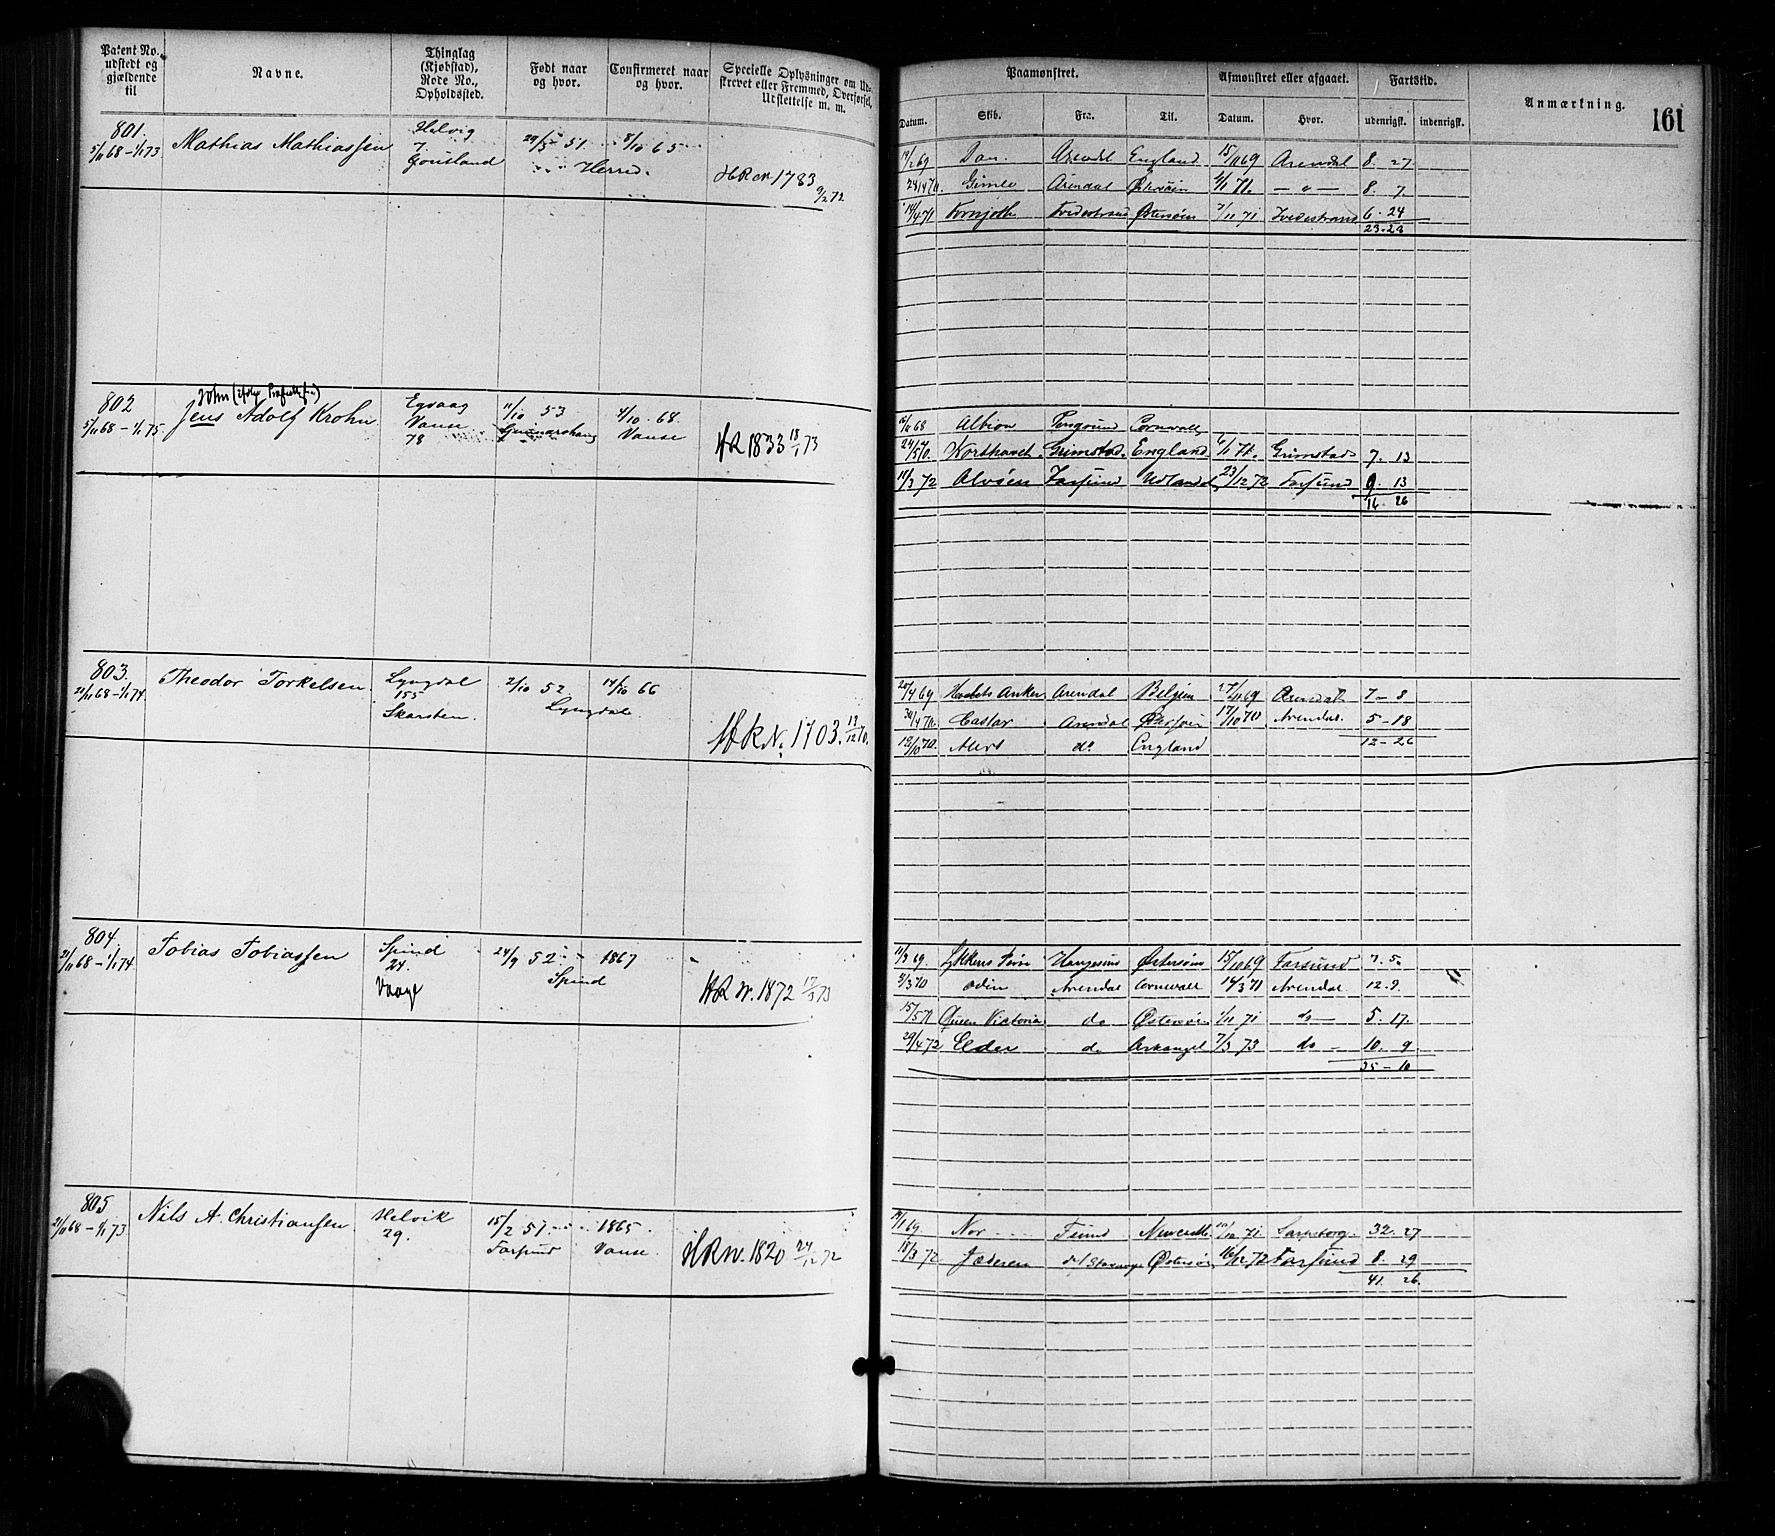 Patent No. udstedt og gjældende til
Navne.
Thinglag (Kjøbstad), Rode No., Opholdssted.
Født naar og hvor.
Confirmeret naar og hvor.
Specielle Oplysninger om Udskrevet eller Fremmed, Overførsel, Udslettelse m. m.
Paamønstret.
Afmønstret eller afgaaet.
Fartstid.
Anmærkning.
161
Datum. Skib. Fra. Til. Datum. Hvor. udenrigsk. indenrigsk.
801.
5/11 68 – 1/1 73
Mathias Mathiassen
Helvig
7.
28/5 51
8/10 65
Herred.
HR No 1783 9/2 72
19/2 69 Dan Arendal England 15/11 69 Arendal 8. 27
Gimle Arendal Østersøen – " – 8. 7
14/4 71 Fornjoth Tvedestrand Østersøen 7/11 71 Tvedestrand 6. 24
23. 28
802
5/11 68 – 1/1 75.
John
Jens Adolf Krohn
Egvaag
Vanse
78
11/10 53
4/10 68.
Vanse
HR 1833 18/1 73
11 68 Albion Cornwall
24/5 70. Korshavn Grimstad England 6/1 71. Grimstad 7. 13
11/3 72 Alvøen Farsund Udlandet 23/12 72 Farsund 9. 13
16. 26
803.
21/11 68 – 1/1 74.
Theodor Torkelsen
Lyngdal
155
Skarsten
2/10 52
14/10 66
Lyngdal
HR No. 1703. 19/12 70.
20/4 69 Anker Arendal Belgien 27/11 69 Arendal 7 – 8
30/4 70. Castor Arendal Østersøen 17/10 70 Arendal. 5 – 18
12 – 26
19/10 70. Alert do England
804.
21/11 68 – 1/1 74
Tobias Tobiassen
Spind
24.
Vaage
24/9 52
1867
Spind
HR No. 1872 17/3 73
11/3 69. Østersøen 15/10 69 Farsund 7. 5.
3/3 70 Odin Arendal Cornwall 14/3 71 Arendal 12. 9.
15/5 71 Queen Victoria do Østersøen 1/11 71 do 5. 17.
29/4 72 Elder do Arkangel 7/3 73 do – 10. 9
35 – 10
805
21/11 68 – 1/1 73
Nils A. Christiansen
Helvik
29.
15/2 51.
Farsund
1865
Vanse.
HR No. 1820 24/12 72
14/1 69. Nor 10/10 71 Sarpsborg. 32. 27
18/3 72 Jæderen Østersøen 16/12 72 Farsund 8. 29
41. 26.